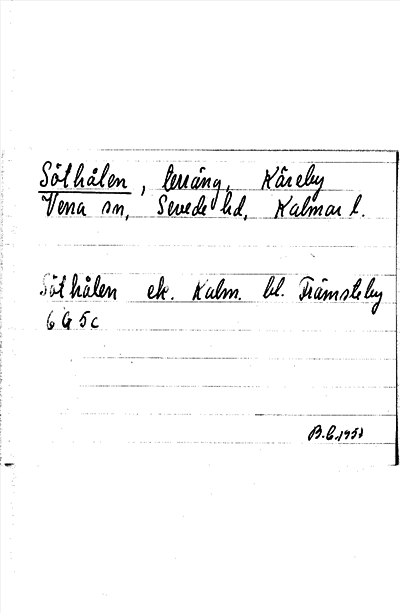 Söthålen, terräng, Kåreby
Vena sn, Sevede hd, Kalmar l.
Söthålen ek. Kalm. bl. Främsteby
6 G 5 c
B.E. 1953